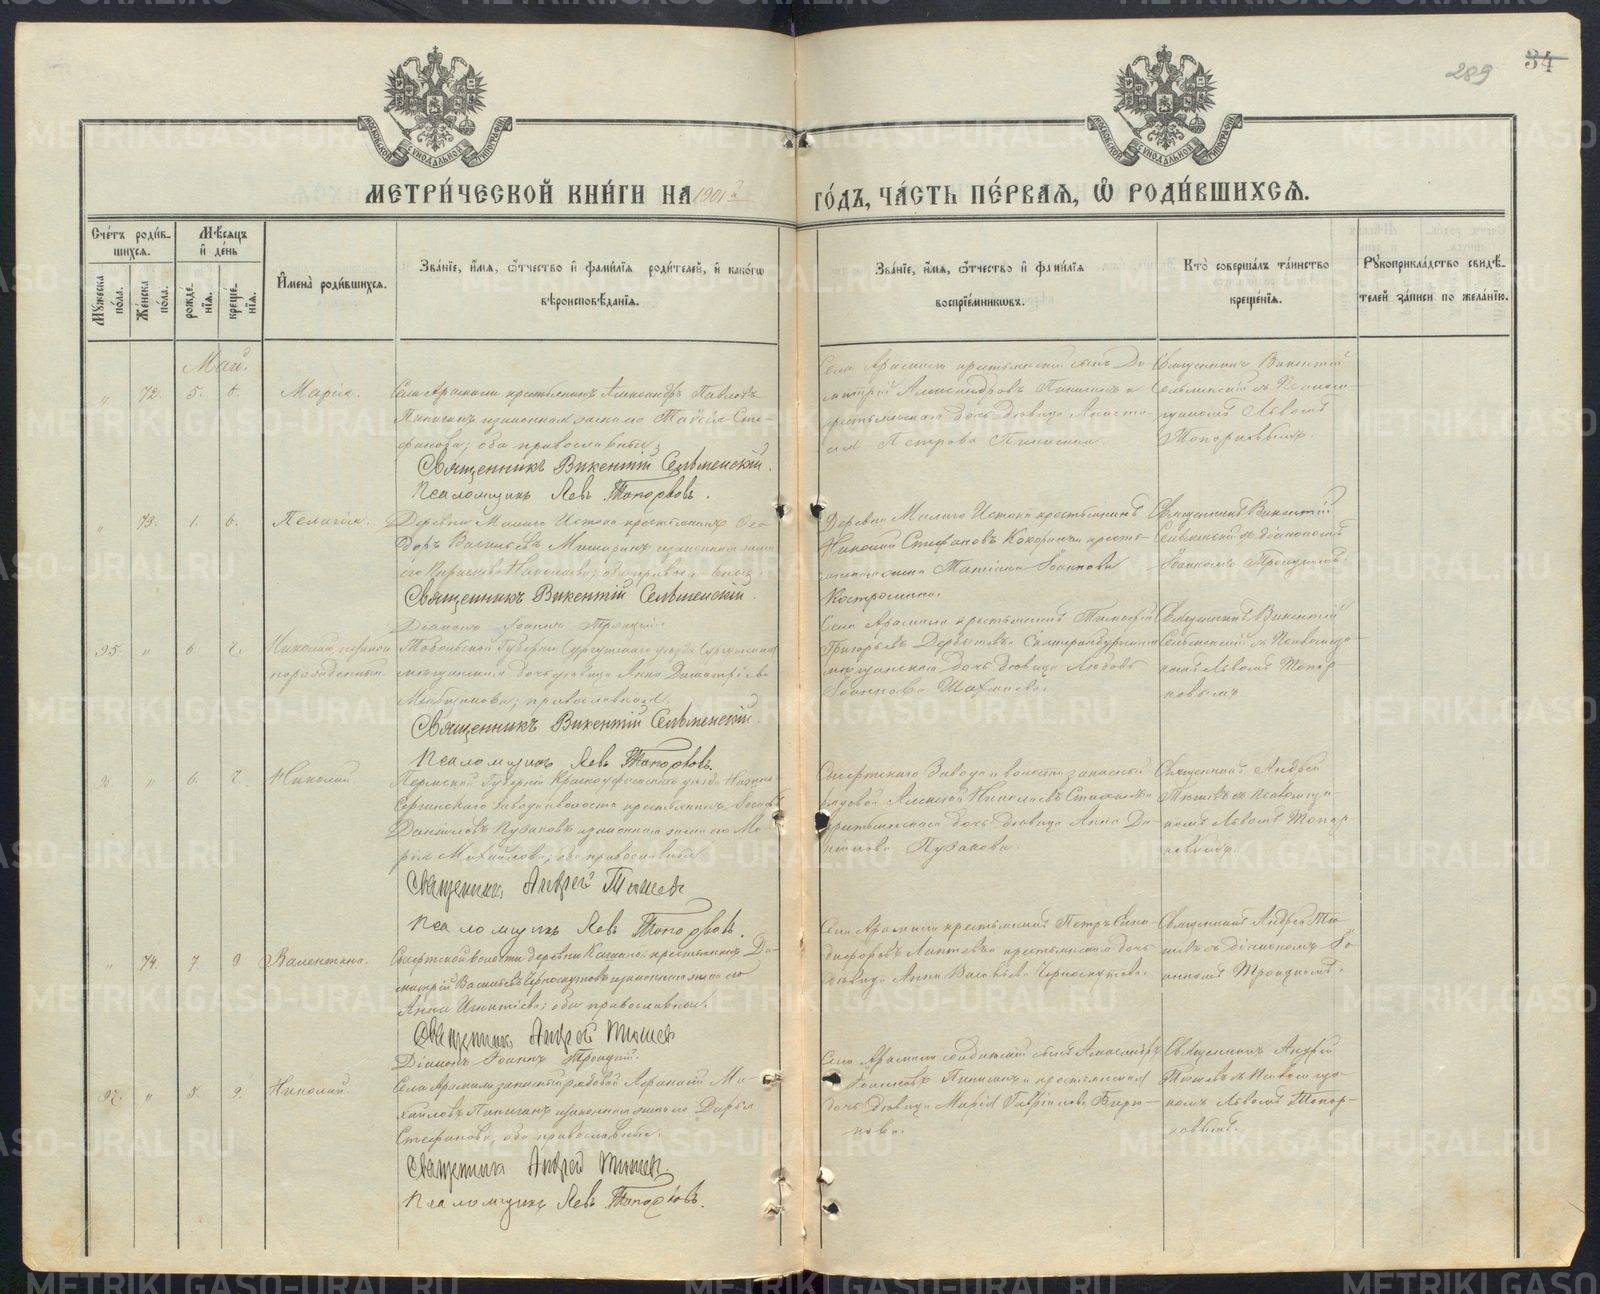 289
34
МЕТРИ́ЧЕСКОЙ КНИ́ГИ НА 1901й
ГО́ДЪ, ЧА́СТЬ ПЕ́РВАЯ, Ѡ҆ РОДИ́ВШИХСѦ.
Сче́тъ роди́в-
шихсѧ.
Мꙋ́жеска по́ла.
Же́нска по́ла.
Мѣ́сѧцъ
и҆ де́нь
рожде́-
нїѧ.
креще́-
нїѧ.
И҆мена̀ роди́вшихсѧ.
Зва́нїе, и҆́мѧ, ѻ҆́тчество и҆ фами́лїѧ роди́телей, и҆ како́гѡ
вѣроисповѣ́данїѧ.
Зва́нїе, и҆́мѧ, ѻ҆́тчество и҆ фами́лїѧ
воспрїе́мникѡвъ.
Кто̀ соверша́лъ та́инство
креще́нїѧ.
Рꙋкоприкла́дство свидѣ́-
телей за́писи по жела́нїю.
Май.
" 72. 5. 6. Марія.
Села Арамили крестьянинъ Александръ Павловъ
Пинигинъ и законная жена его Таисія Сте-
фанова; оба православные.
Священникъ Викентій Сельменскій.
Псаломщикъ Левъ Топорковъ.
Села Арамили крестьянскій сынъ Ди-
митрій Александровъ Пинигинъ и
крестьянская дочь дѣвица Анаста-
сія Петрова Пинигина.
Священникъ Викентій
Сельменскій съ Псалом-
щикомъ Львомъ
Топорковымъ.
" 73. 1. 6. Пелагія.
Деревни Малаго Истока крестьянинъ Ѳео-
доръ Васильевъ и законная жена
его Николаева; оба православные.
Священникъ Викентій Сельменскій.
Діаконъ Іоаннъ Троицкій.
Деревни Малаго Истока крестьянинъ
Николай Стефановъ Кокоринъ и кресть-
жена Татіана Іоаннова
Костромина.
Священникъ Викентій
Сельменскій съ діакономъ
Іоанномъ Троицкимъ.
95. " 6 7. Николай, незаконно-
рожденный.
Тобольской Губерніи Сургутскаго уѣзда Сургутская
мѣщанская дочь дѣвица Анна Димитріева
православная.
Священникъ Викентій Сельменскій.
Псаломщикъ Левъ Топорковъ.
Села Арамили крестьянинъ Тимофей
Григорьевъ Екатеринбургская
мѣщанская дочь дѣвица Любовь
Іоаннова
Священникъ Викентій
Сельменскій съ Псаломщи-
комъ Львомъ Топор-
ковымъ
96. " 6. 7. Николай
Пермской Губерніи Красноуфимскаго уѣзда Нижне-
Сергинскаго Завода и волости крестьянинъ Іосифъ
Даниловъ Пузаковъ и законная жена его Ма-
рія Михайлова; оба православные
Священникъ Андрей Тюшевъ
Псаломщикъ Левъ Топорковъ.
Сысертскаго Завода и волости запасный
рядовой Алексей Николаевъ
крестьянская дочь дѣвица Анна Да-
нилова Пузакова.
Священникъ Андрей
Тюшевъ съ Псаломщи-
комъ Львомъ Топор-
ковымъ.
" 74. 7. 9 Валентина.
Сысертской волости деревни крестьянинъ Ди-
митрій Васильевъ Черноскутовъ и законная жена его
Анна Игнатіева; оба православные.
Священникъ Андрей Тюшевъ
Діаконъ Іоаннъ Троицкій.
Села Арамили крестьянинъ Петръ Ники-
форовъ Лаптевъ и крестьянская дочь
дѣвица Анна Васильева Черноскутова.
Священникъ Андрей Тю-
шевъ съ діакономъ Іо-
анномъ Троицкимъ.
97. " 5. 9. Николай.
Села Арамили запасный рядовой Аѳанасій Ми-
хайловъ Пинигинъ и законная жена его Дарья
Стефанова; оба православные.
Священникъ Андрей Тюшевъ.
Псаломщикъ Левъ Топорковъ.
Села Арамили солдатскій сынъ Александръ
Іоанновъ Пинигинъ и крестьянская
дочь дѣвица Марія Гавріилова Бирю-
кова.
Священникъ Андрей
Тюшевъ съ Псаломщи-
комъ Львомъ Топор-
ковымъ.
METRIKI.GASO-URAL.RU